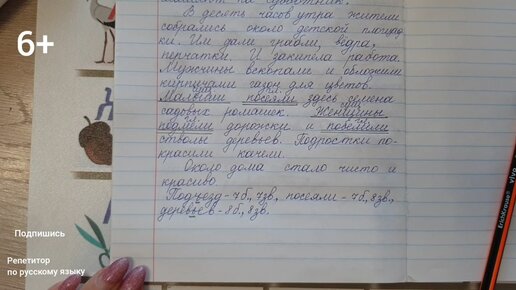 6+
В десять часов утра жители
собрались около детской площад-
ки. Им дали грабли, вёдра,
перчатки. И закипела работа.
Мужчины вскопали и обложили
кирпичами газон для цветов.
Малыши посеяли здесь семена
садовых ромашек. Женщины
подмели дорожки и побелили
стволы деревьев. Подростки по-
красили качели.
Около дома стало чисто и
красиво.
Подъезд - 7б., 7зв., посеяли - 7б., 8зв.,
деревьев - 8б., 8зв.
Подпишись
Репетитор
по русскому языку
ErichKrause
vivo